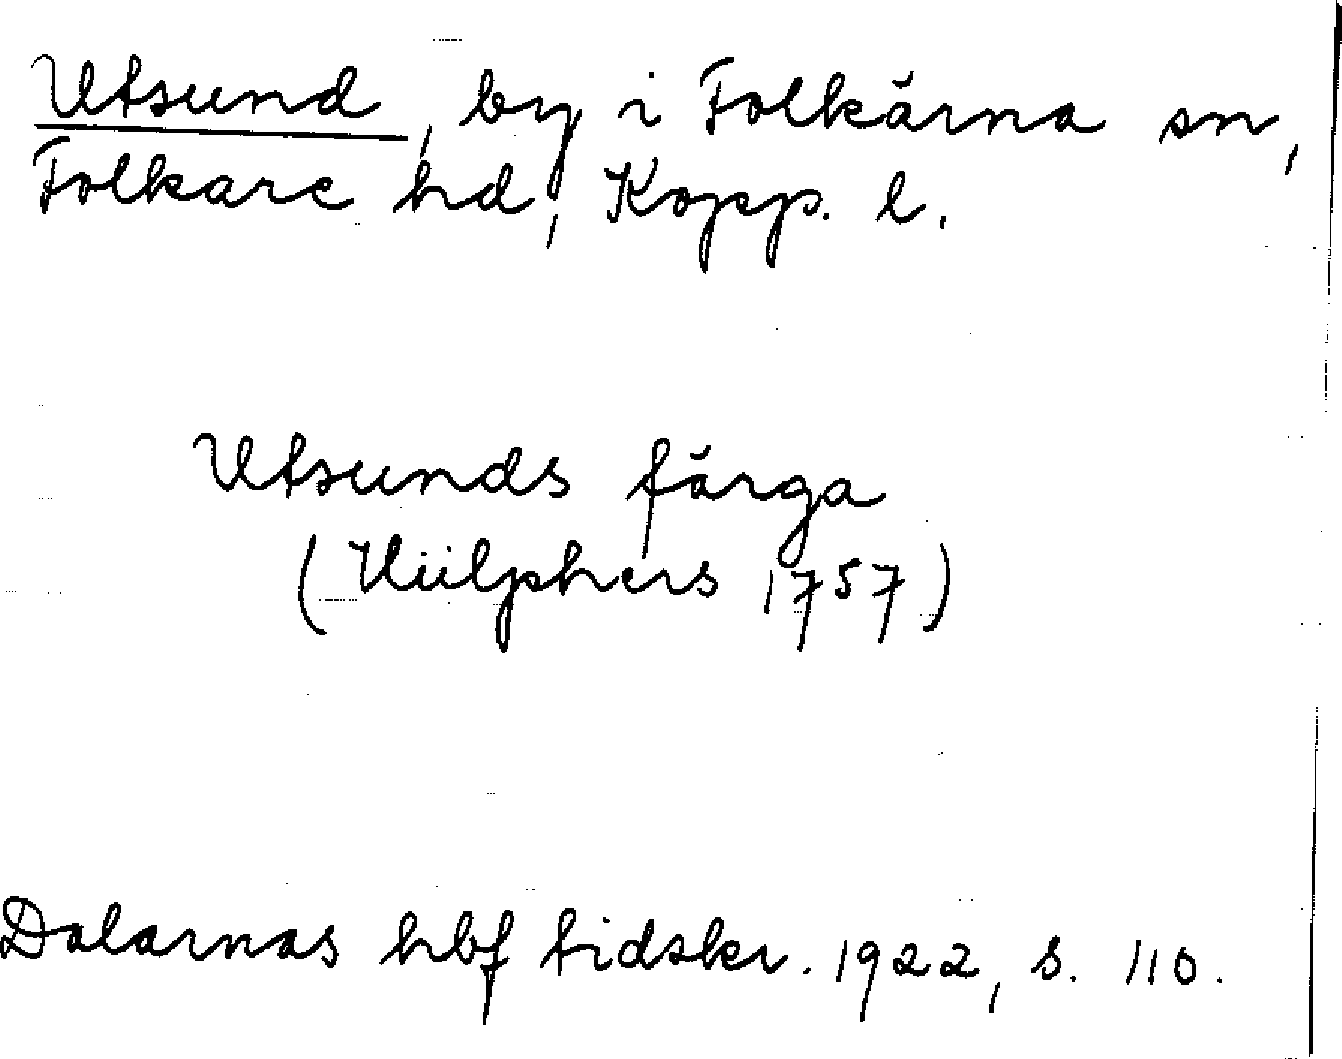 Utsund, by i Folkärna sn,
Folkare hd, Kopp. l.
Utsunds färga
(Hülphers 1757)
Dalarnas hbf tidskr. 1922, s. 110.